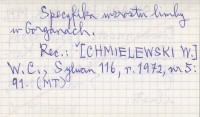 Specyfika wzrostu limby
w Gorganach.
Rec.: [CHMIELEWSKI W.]
W.C., Sylwan 116, r. 1972, nr 5:
91. (MT)